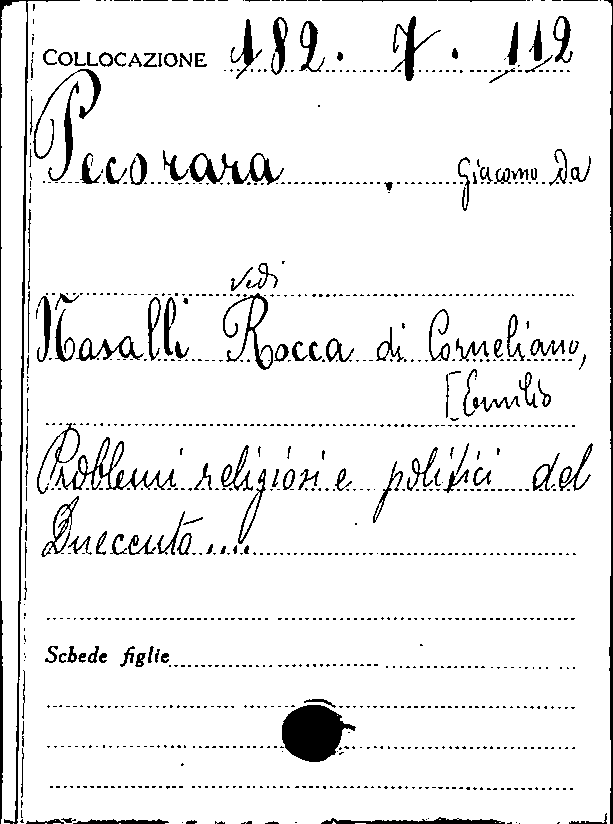 COLLOCAZIONE 182. 7. 112
Pecorara, Giacomo da
vedi
Nasalli Rocca di Corneliano,
[Emilio
Problemi religiosi e politici del
Duecento....
Schede figlie